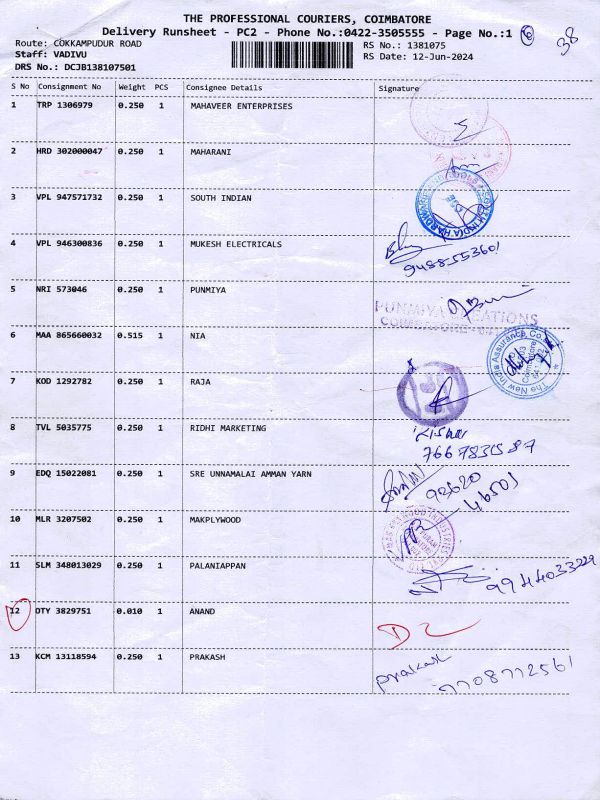 THE PROFESSIONAL COURIERS, COIMBATORE
Delivery Runsheet - PC2 - Phone No.:0422-3505555 - Page No.:1 6
38
Route: COKKAMPUDUR ROAD RS No.: 1381075
Staff: VADIVU RS Date: 12-Jun-2024
DRS No.: DCJB138107501
S No Consignment No Weight PCS Consignee Details Signature
1 TRP 1306979 0.250 1 MAHAVEER ENTERPRISES
2 HRD 302000047 0.250 1 MAHARANI
3 VPL 947571732 0.250 1 SOUTH INDIAN
4 VPL 946300836 0.250 1 MUKESH ELECTRICALS
9488553601
5 NRI 573046 0.250 1 PUNMIYA
PUNMIYA CREATIONS
6 MAA 865660032 0.515 1 NIA
The New India Assurance Co.
7 KOD 1292782 0.250 1 RAJA
8 TVL 5035775 0.250 1 RIDHI MARKETING
9 EDQ 15022081 0.250 1 SRE UNNAMALAI AMMAN YARN
93620
46501
10 MLR 3207502 0.250 1 MAKPLYWOOD
11 SLM 348013029 0.250 1 PALANIAPPAN
9944033229
12 OTY 3829751 0.010 1 ANAND
13 KCM 13118594 0.250 1 PRAKASH
prakash